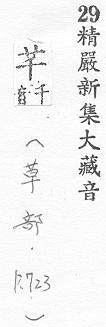 29精嚴新集大藏音
芊
千音
（草部．P.723）